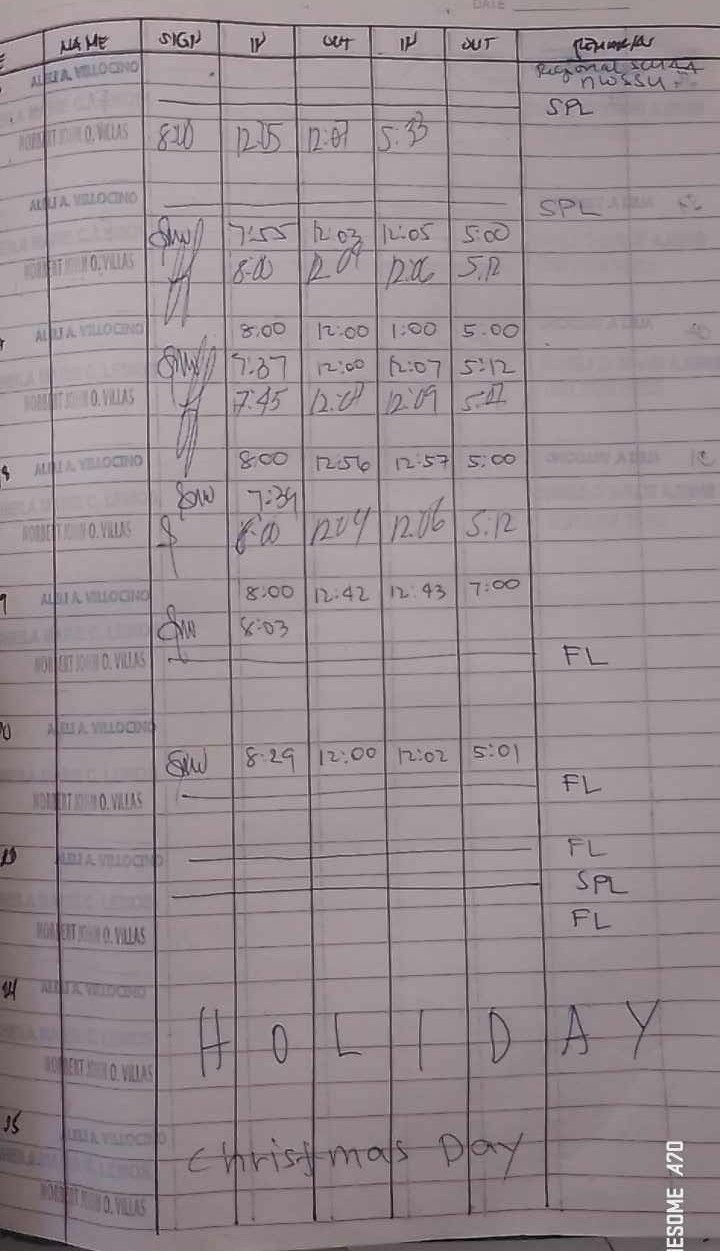 DATE
NAME SIGN IN OUT IN OUT REMARKS
ALELI A. VILLOCINO Regional
SPL
NORBERT JOHN O. VILLAS 8:00 12:05 12:07 5:33
ALELI A. VILLOCINO SPL
7:55 12:03 12:05 5:00
NORBERT JOHN O. VILLAS 8:00 12:04 12:06 5:12
ALELI A. VILLOCINO 8:00 12:00 1:00 5:00
7:37 12:00 12:07 5:12
NORBERT JOHN O. VILLAS 7:45 12:07 12:09 5:07
8 ALELI A. VILLOCINO 8:00 12:56 12:57 5:00
7:39
NORBERT JOHN O. VILLAS 8:00 12:04 12:06 5:12
9 ALELI A. VILLOCINO 8:00 12:42 12:43 7:00
8:03
NORBERT JOHN O. VILLAS FL
0 ALELI A. VILLOCINO
8:29 12:00 12:02 5:01
NORBERT JOHN O. VILLAS FL
23 ALELI A. VILLOCINO FL
SPL
NORBERT JOHN O. VILLAS FL
24 ALELI A. VILLOCINO
HOLIDAY
NORBERT JOHN O. VILLAS
25 ALELI A. VILLOCINO
Christmas Day
NORBERT JOHN O. VILLAS
ESOME A70